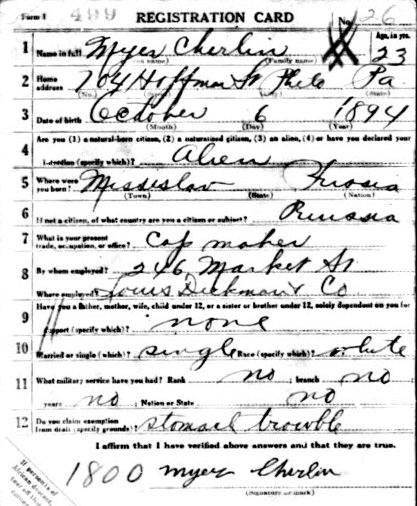 Form 1 499 REGISTRATION CARD No. 26
1 Name in full Myer Cherlin Age, in yrs. 23
(Given name) (Family name)
2 Home address 704 Hoffman St Phila Pa
(No.) (Street)
3 Date of birth October 6 1894
(Month) (Day) (Year)
Are you (1) a natural-born citizen, (2) a naturalized citizen, (3) an alien, (4) or have you declared your
4 intention (specify which)? Alien
5 Where were you born? Missislav Russia
(Town) (State) (Nation)
6 If not a citizen, of what country are you a citizen or subject? Russia
7 What is your present trade, occupation, or office? Cap maker
8 By whom employed? 246 Market St
Where employed? Louis Dickman & Co
Have you a father, mother, wife, child under 12, or a sister or brother under 12, solely dependent on you for
9 support (specify which)? none
10 Married or single (which)? single Race (specify which)? white
11 What military service have you had? Rank no ; branch no
years no ; Nation or State no
12 Do you claim exemption from draft (specify grounds)? stomach trowble
I affirm that I have verified above answers and that they are true.
1800 Myer Cherlin
(Signature or mark)
If person is of
African descent,
tear off this
corner